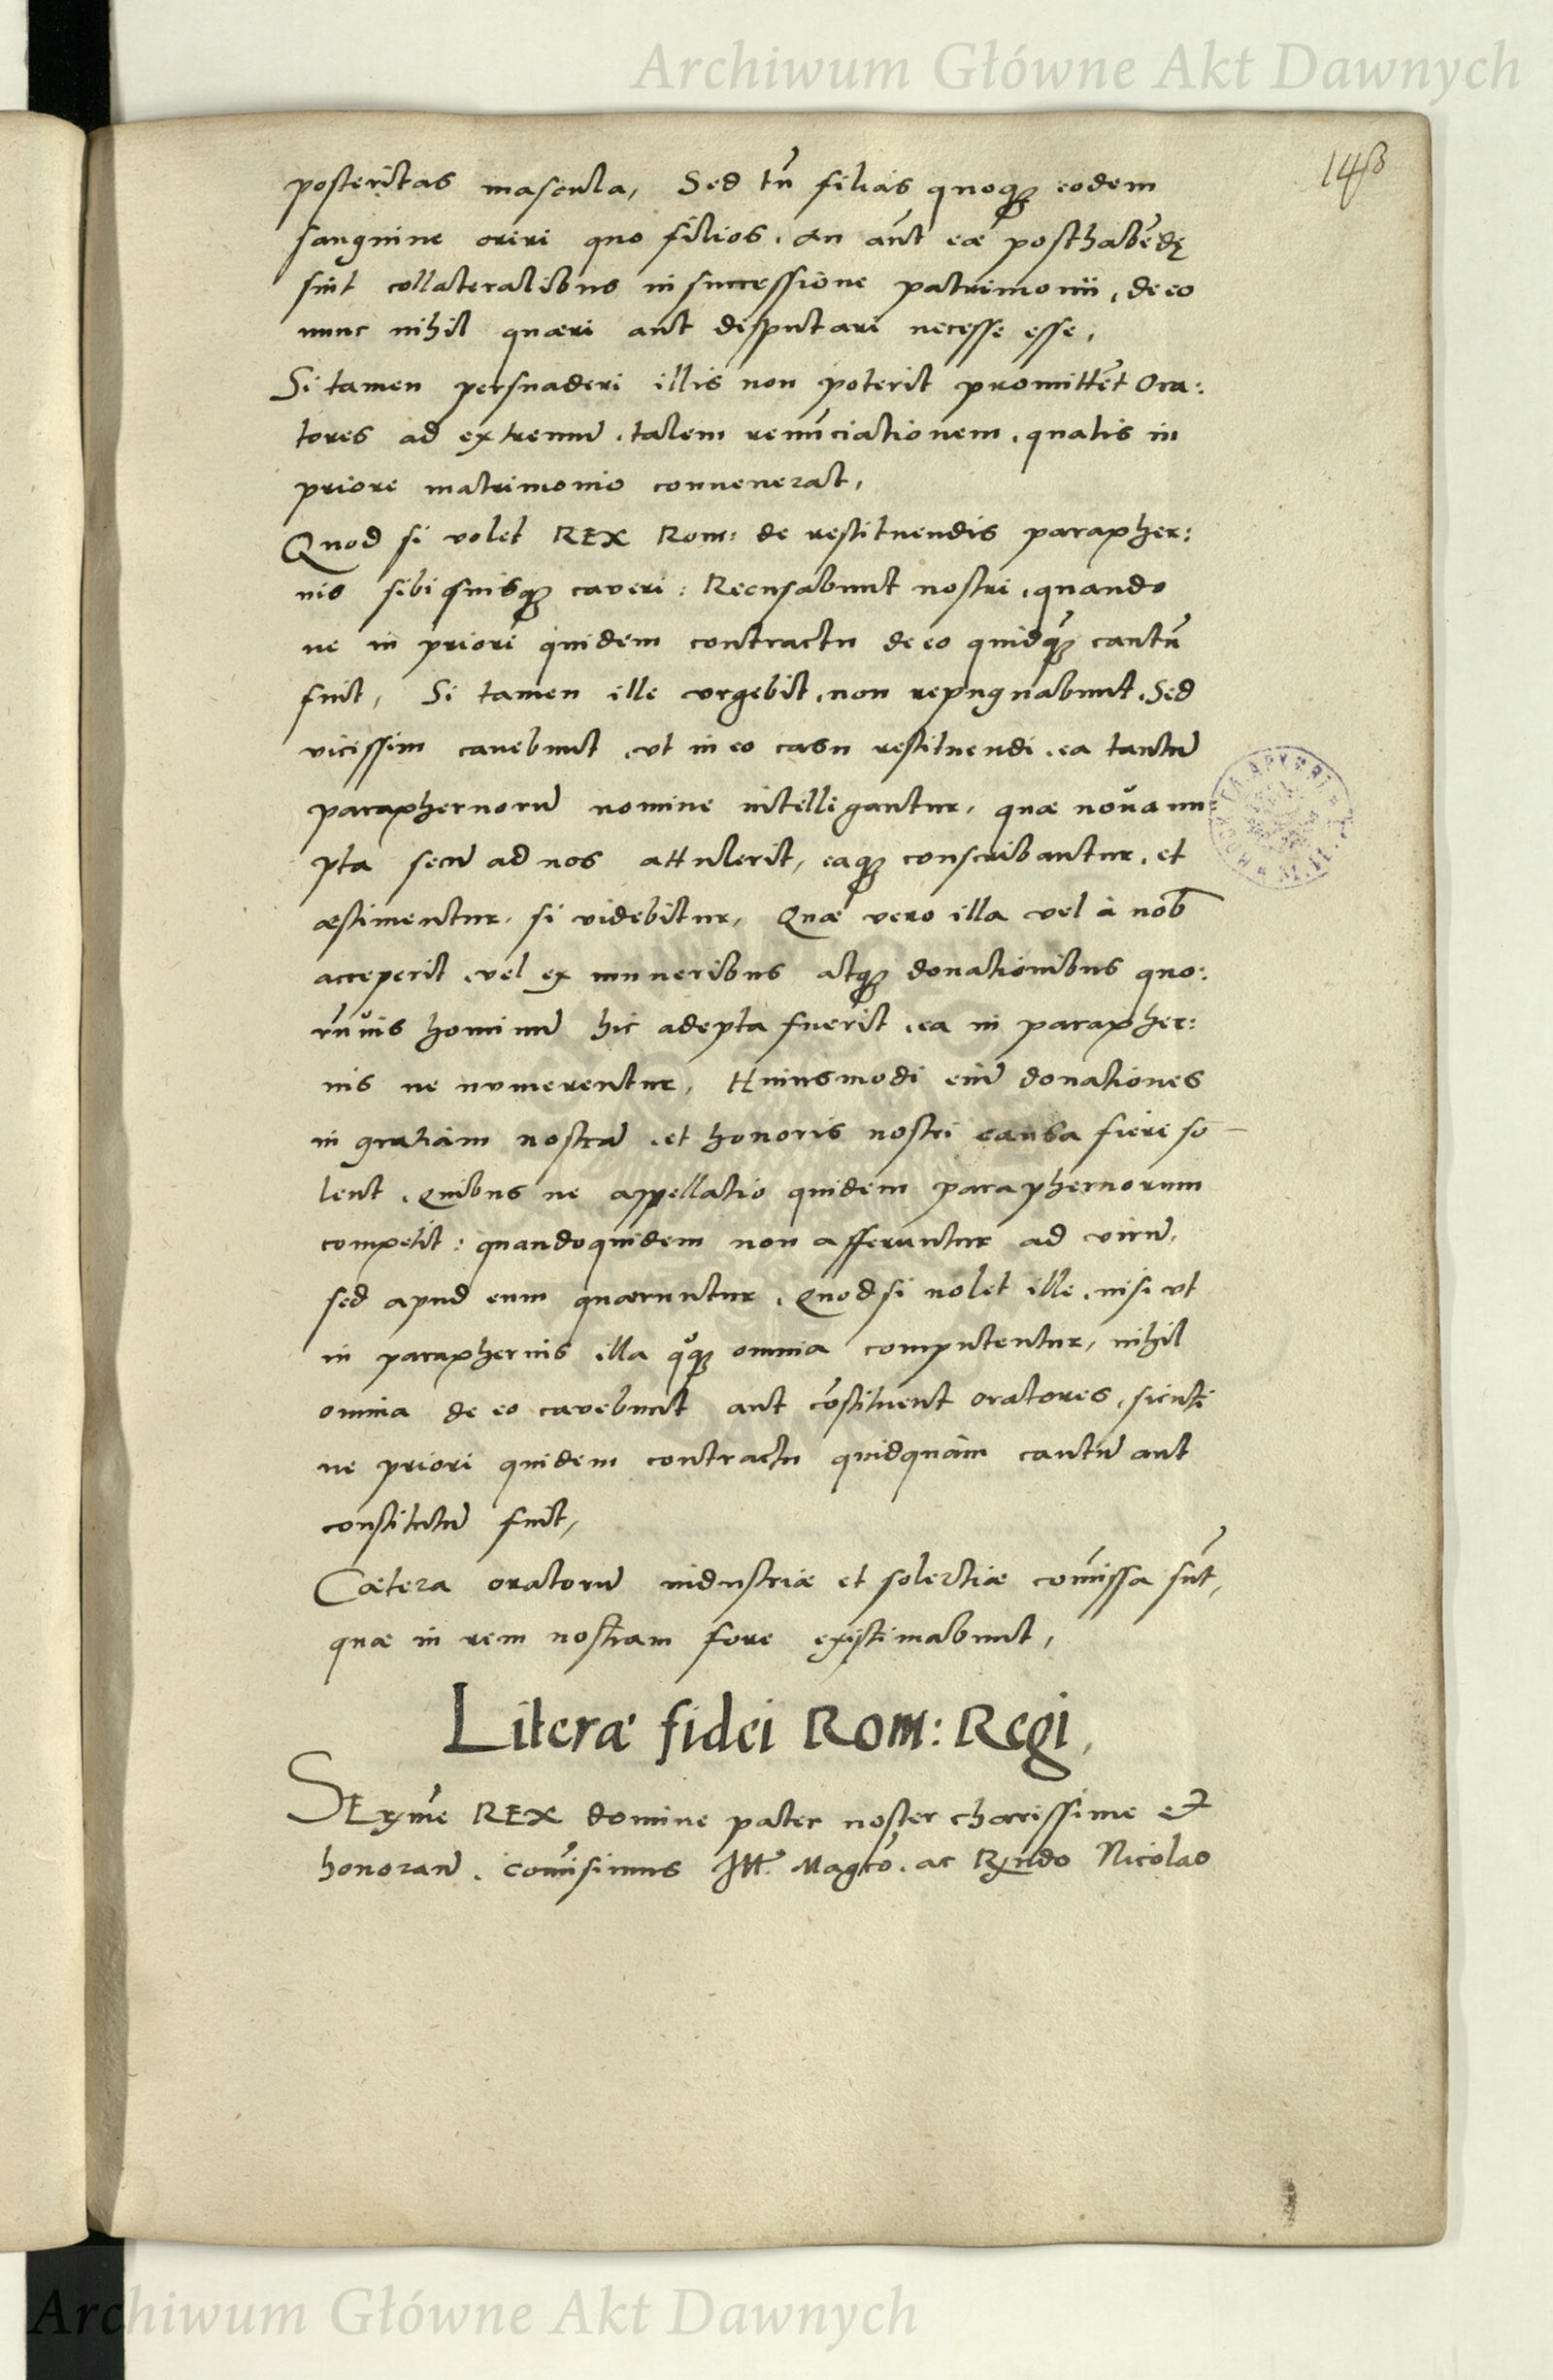 Archiwum Główne Akt Dawnych
148
posteritas mascula, Sed tñ filias quoqꝫ eodem
sanguine oriri quo filios. An aũt eæ posthabẽdę
sint collateralibus in successione patrimonii, de eo
nunc nihil quæri aut disputari necesse esse,
Si tamen persuaderi illis non poterit promittẽt Ora:
tores ad extremũ, talem renũciationem, qualis in
priore matrimonio convenerat,
Quod si volet REX Rom: de restituendis parapher:
nis sibi suisqꝫ caveri: Recusabunt nostri, quando
ne in priori quidem contractu de eo quidqꝫ cautũ
fuit, Si tamen ille urgebit, non repugnabunt, Sed
vicissim cavebunt, ut in eo casu restituendi, ea tantũ
paraphernorũ nomine intelligantur, quæ nova nu
pta secũ ad nos attulerit, eaqꝫ conscribantur, et
æstimentur, si videbitur, Quæ vero illa vel à nob
acceperit, vel ex muneribus atqꝫ donationibus quo:
rũvis hominũ hic adepta fuerit, ea in parapher:
nis ne numerentur, Huiusmodi eiũ donationes
in gratiam nostrũ, et honoris nostri causa fieri so
lent, Quibus ne appellatio quidem paraphernorum
competit: quandoquidem non afferuntur ad virũ,
sed apud eum quæruntur, Quod si nolet ille, nisi ut
in paraphernis illa qꝫ omnia computentur, nihil
omnia de eo cavebunt aut cõstituent oratores, sicuti
ne priori quidem contractu quidquam cautũ aut
constitutũ fuit,
Cætera oratorũ industriæ et solertiæ cõmissa sũt,
quæ in rem nostram fore existimabunt,
Literæ fidei Rom: Regi,
SErẽme REX domine pater noster charissime et
honorañ. Cõmisimus Ill. Magco. ac Rṽndo Nicolao
Archiwum Główne Akt Dawnych